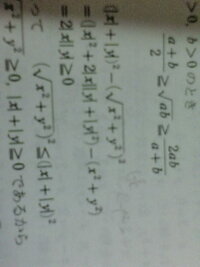 >0, b>0のとき
a+b/2 ≥ √ab ≥ 2ab/a+b
(|x|+|y|)²−(√x²+y²)²
=(|x|²+2|x||y|+|y|²)−(x²+y²)
=2|x||y|≥0
って (√x²+y²)²≤(|x|+|y|)²
√x²+y²≥0, |x|+|y|≥0 であるから